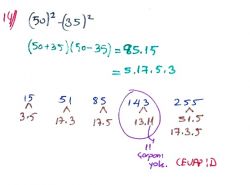 14) (50)² - (35)²
(50+35)(50-35) = 85.15
= 5.17.5.3
15 51 85 143 255
3.5 17.3 17.5 13.11 51.5
11 17.3.5
çarpanı
yok. CEVAP: D